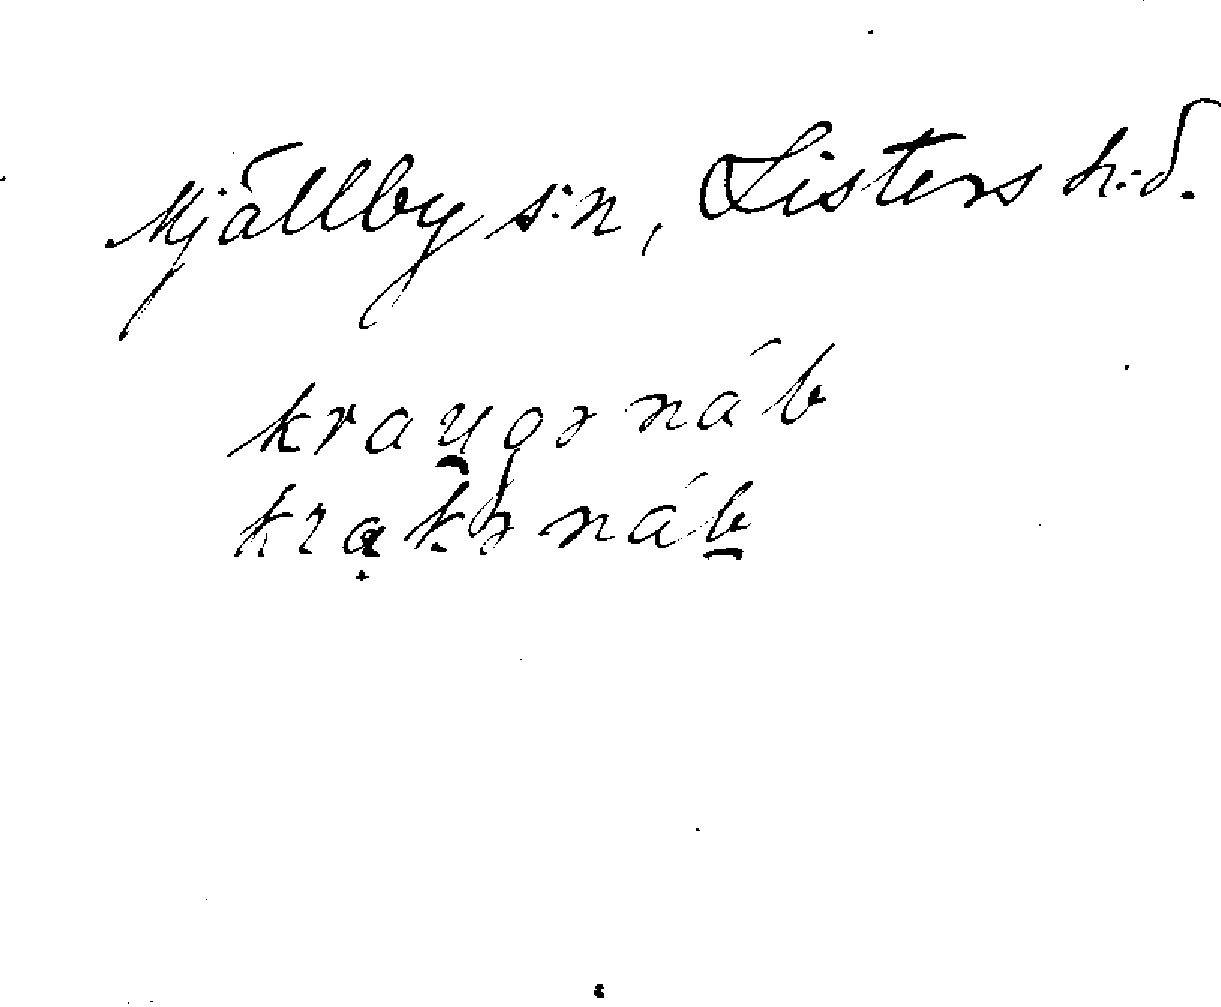 Mjällby s:n, Listers h:d.
krau̯gə náb
krạkə náb̲